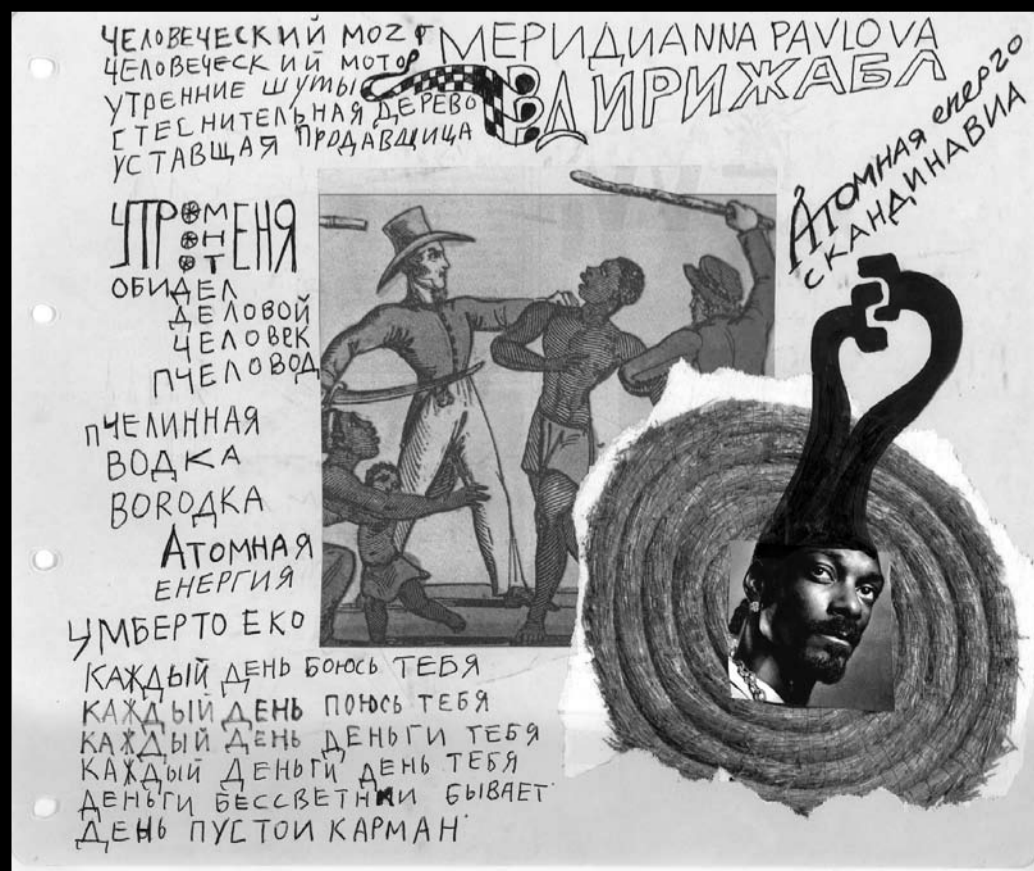 ЧЕЛОВЕЧЕСКИЙ МОЗГ
ЧЕЛОВЕЧЕСКИЙ МОТОР
УТРЕННИЕ ШУТЫ
СТЕСНИТЕЛЬНАЯ ДЕРЕВО
УСТАВЩАЯ ПРОДАВЩИЦА
МЕРИДИАNNA PAVLOVA
ДИРИЖАБЛ
АТОМНАЯ енерго
СКАНДИНАВИА
УТРОМ
ОН
ОТ
МЕНЯ
ОБИДЕЛ
ДЕЛОВОЙ
ЧЕЛОВЕК
ПЧЕЛОВОД
ПЧЕЛИННАЯ
ВОДКА
BORODКА
АТОМНАЯ
ЕНЕРГИЯ
УМБЕРТО ЕКО
КАЖДЫЙ ДЕНЬ БОЮСЬ ТЕБЯ
КАЖДЫЙ ДЕНЬ ПОЮСЬ ТЕБЯ
КАЖДЫЙ ДЕНЬ ДЕНЬГИ ТЕБЯ
КАЖДЫЙ ДЕНЬГИ ДЕНЬ ТЕБЯ
ДЕНЬГИ БЕССВЕТНИ БЫВАЕТ
ДЕНЬ ПУСТОИ КАРМАН